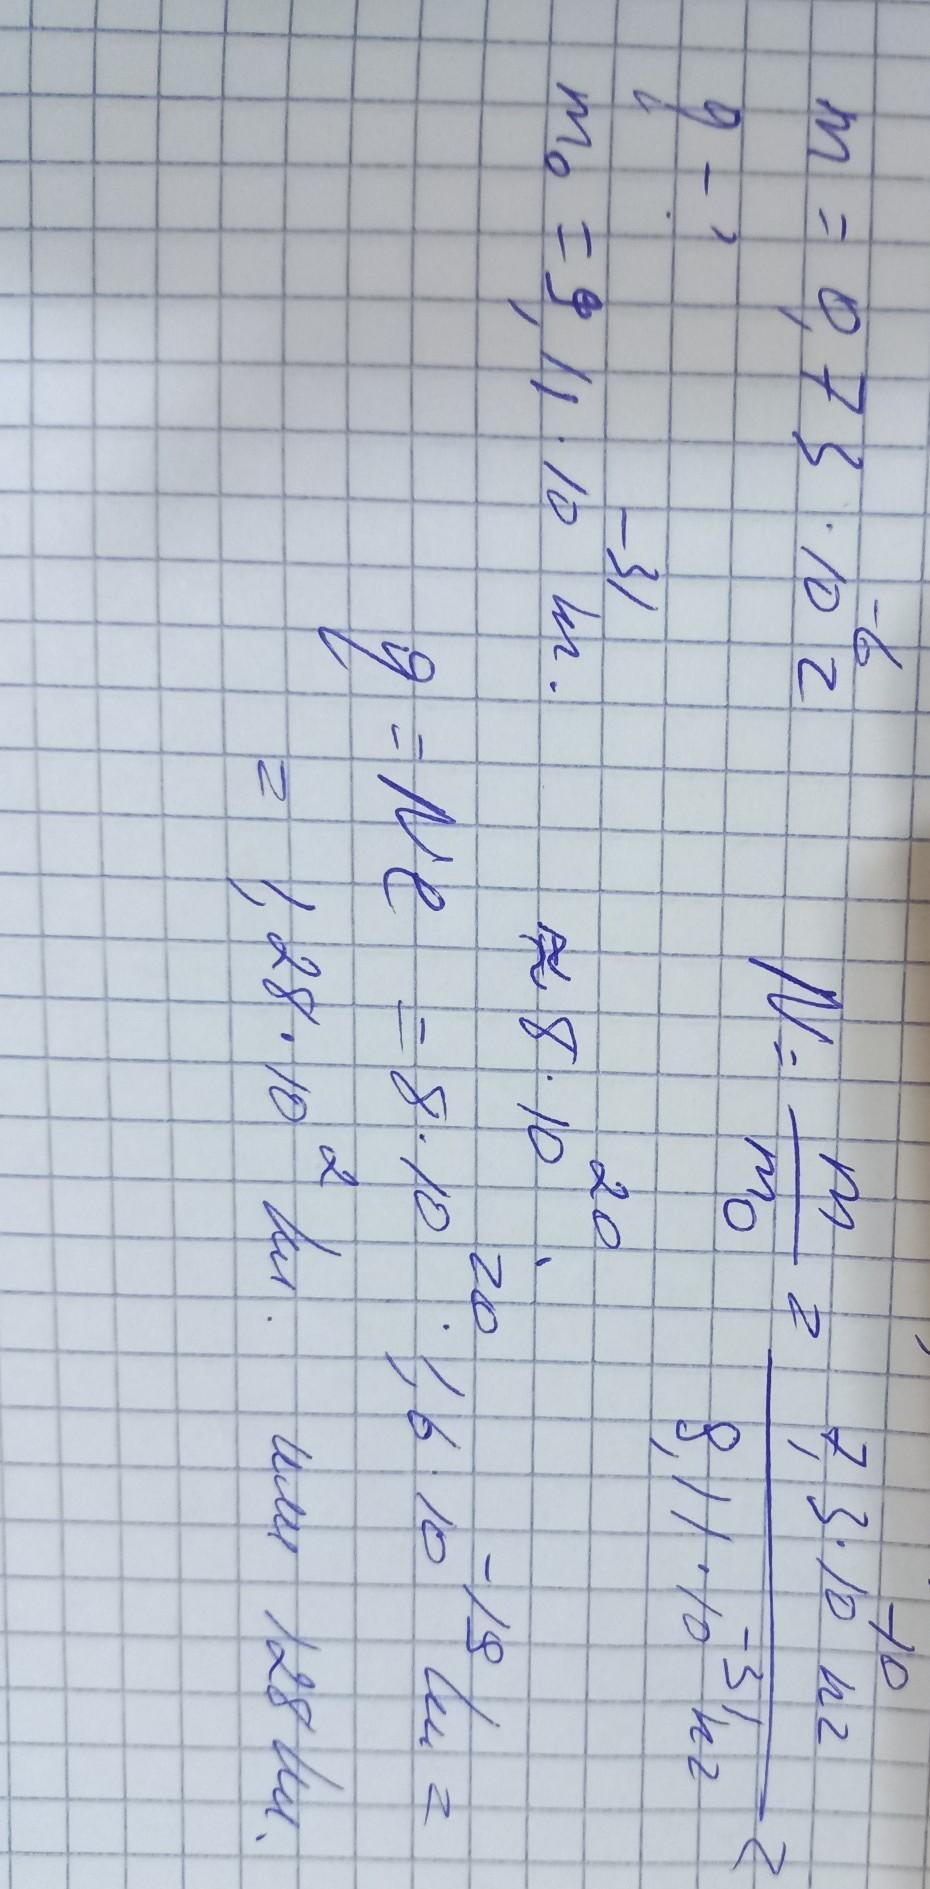 m = 0,73 · 10⁻⁶ г
q - ?
m₀ = 9,11 · 10⁻³¹ кг.
N = m/m₀ = 7,3 · 10⁻¹⁰ кг / 9,11 · 10⁻³¹ кг ≈
≈ 8 · 10²⁰.
q = Ne = 8 · 10²⁰ · 1,6 · 10⁻¹⁹ Кл =
= 1,28 · 10² Кл. или 128 Кл.